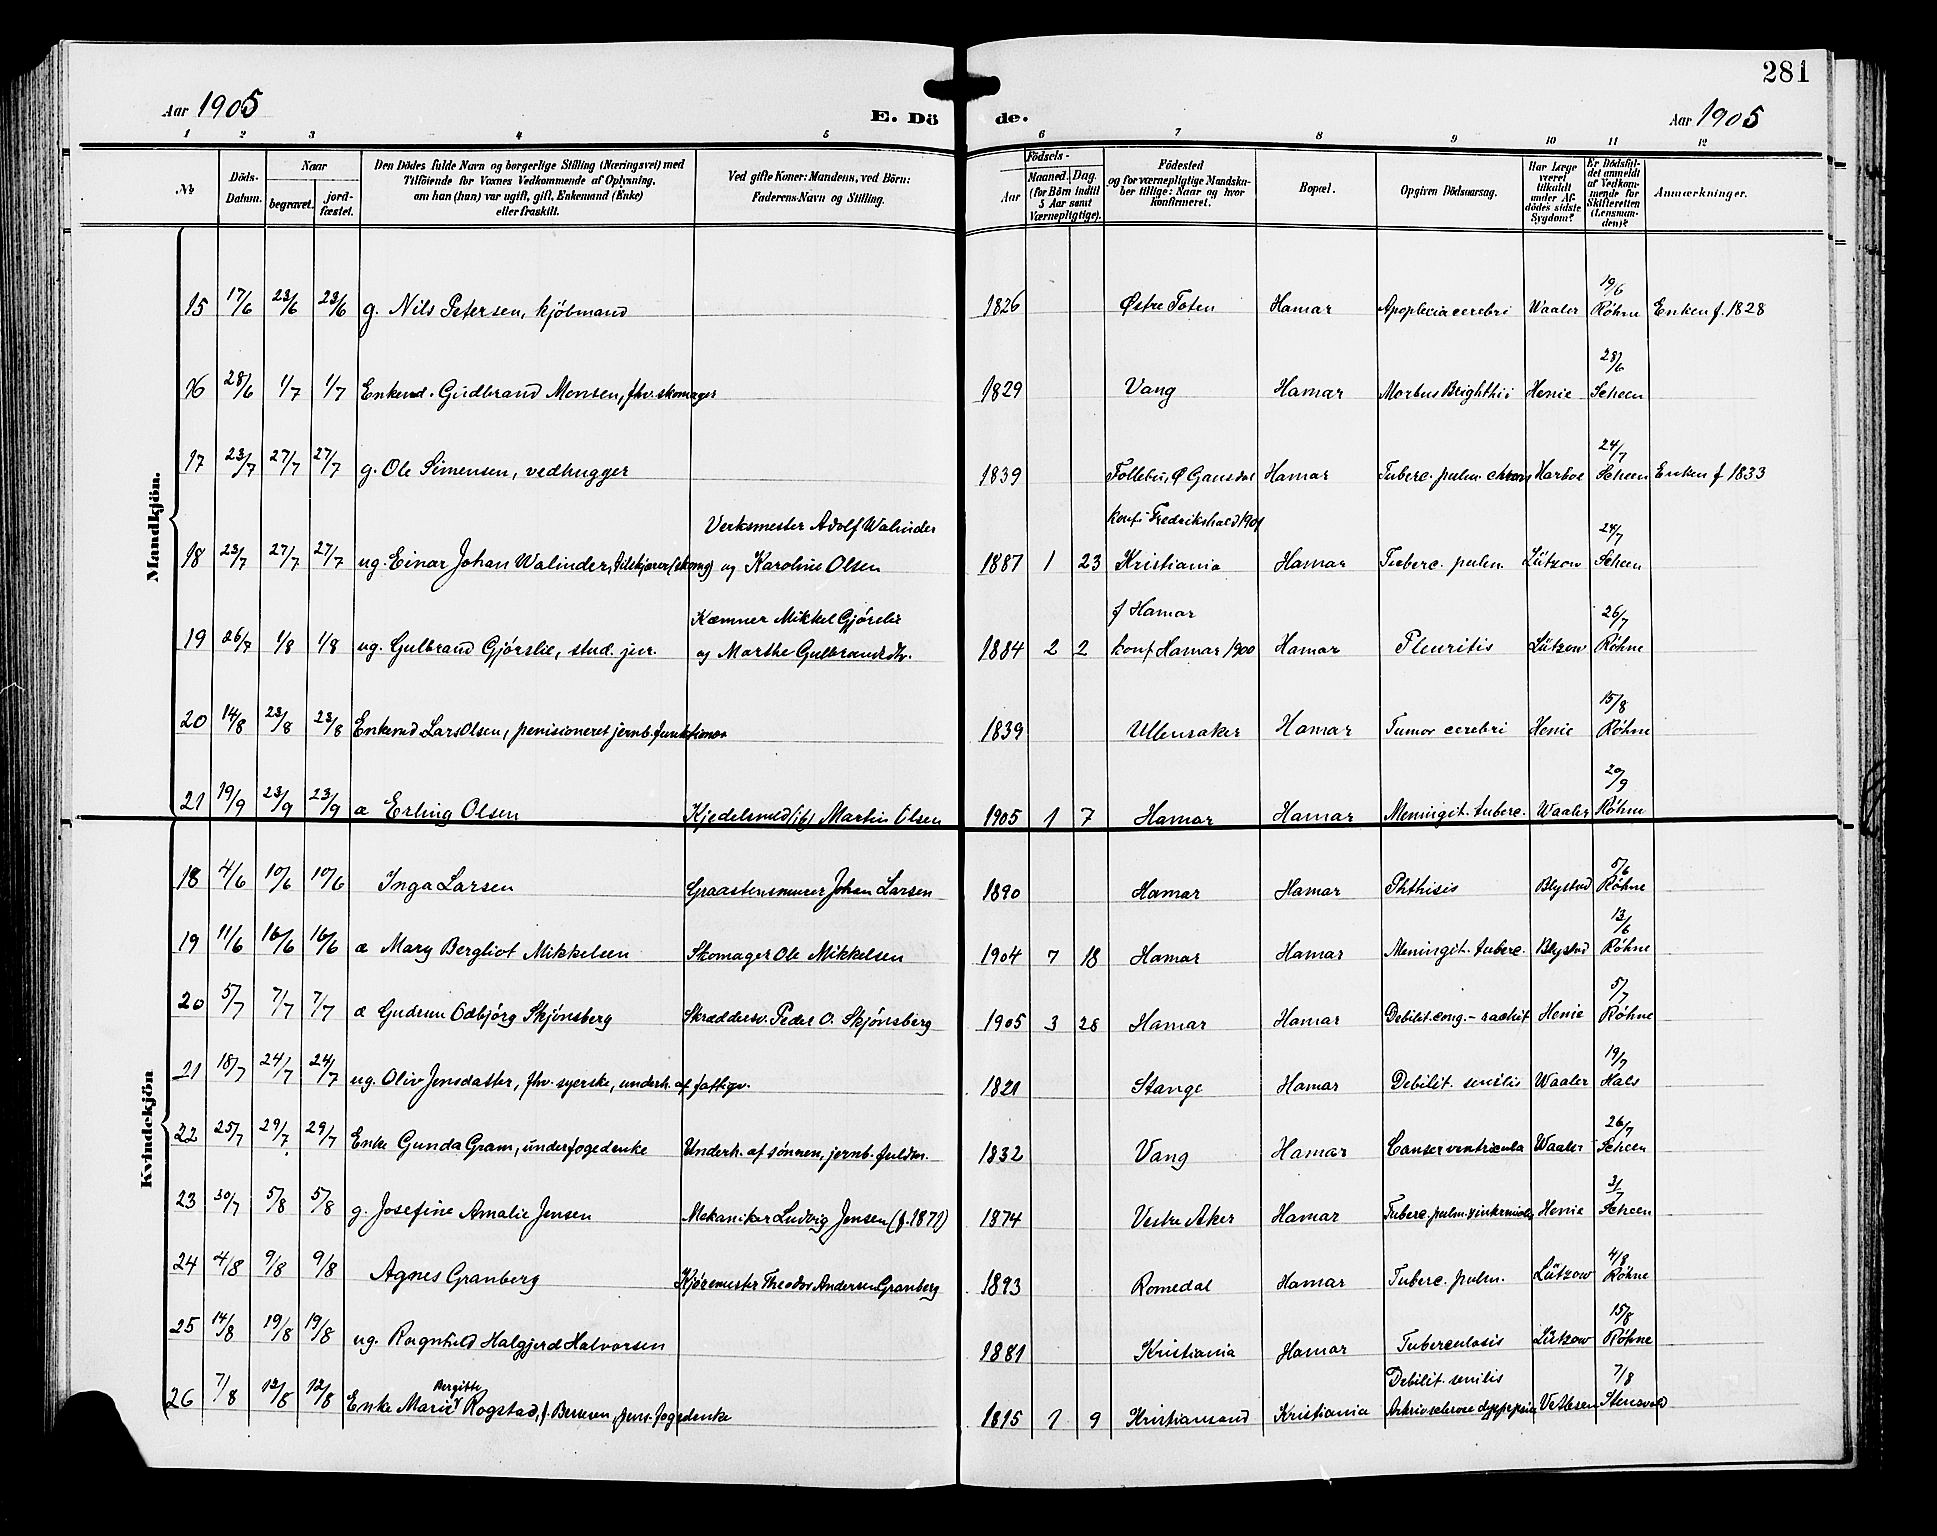 281
Aar 1905 E. Dö de. Aar 1905
1 2 3 4 5 6 7 8 9 10 11 12
№ Döds-Datum. Naar begravet. jord-fæstet. Den Dödes fulde Navn og borgerlige Stilling (Næringsvei) med Tilföiende for Voxnes Vedkommende af Oplysning, om han (hun) var ugift, gift, Enkemand (Enke) eller fraskilt. Ved gifte Koner: Mandens, ved Börn: Faderens Navn og Stilling. Födsels- Aar Maaned. Dag. (for Börn indtil 5 Aar samt Værnepligtige). Födested og for værnepligtige Mandskaber tillige: Naar og hvor konfirmeret. Bopæl. Opgiven Dödsaarsag. Har Læge været tilkaldt under Afdödes sidste Sygdom? Er Dödsfaldet anmeldt af Vedkommende for Skifteretten (Lensmanden)? Anmærkninger.
Mandkjön.
15 17/6 23/6 23/6 g. Nils Petersen, kjöbmand 1826 Østre Toten Hamar Apoplexia cerebri Waaler 19/6 Röhne Enken f. 1828
16 28/6 1/7 1/7 Enkemd. Gudbrand Monsen, fhv. skomager 1829 Vang Hamar Morbus Brighthii Henie 28/6 Scheen
17 23/7 27/7 27/7 g. Ole Simensen, vedhugger 1839 Follebu, Ø Gausdal Hamar Tuberc. pulm. chron Harboe 24/7 Scheen Enken f 1833
18 23/7 27/7 27/7 ug. Einar Johan Walinder, tilskjærer (skomg) Verksmester Adolf Walinder og Karoline Olsen 1887 1 23 konf. Fredrikshald 1901 Kristiania Hamar Tuberc. pulm. Lützow 24/7 Scheen
19 26/7 1/8 1/8 ug. Gulbrand Gjörslie, stud. jur. Kæmner Mikkel Gjörslie og Marthe Gulbrandsdtr. 1884 2 2 f Hamar konf Hamar 1900 Hamar Pleuritis Lützow 26/7 Röhne
20 14/8 23/8 23/8 Enkemd Lars Olsen, pensioneret jernb. funktionær 1839 Ullensaker Hamar Tumor cerebri Henie 15/8 Röhne
21 19/9 23/9 23/9 æ Erling Olsen Kjedelsmed Martin Olsen 1905 1 7 Hamar Hamar Meningit. tuberc. Waaler 20/9 Röhne
Kvindekjön
18 4/6 10/6 10/6 Inga Larsen Graastensmurer Johan Larsen 1890 Hamar Hamar Phthisis Blystad 5/6 Röhne
19 11/6 16/6 16/6 æ Mary Bergliot Mikkelsen Skomager Ole Mikkelsen 1904 7 18 Hamar Hamar Meningit. tuberc. Blystad 13/6 Röhne
20 5/7 7/7 7/7 æ Gudrun Odbjörg Skjönsberg Skræddersv. Peder O. Skjönsberg 1905 3 28 Hamar Hamar Debilit. cong. - rachit Henie 5/7 Röhne
21 18/7 24/7 24/7 ug. Oliv Jensdatter, fhv. syerske, underh. af fattigv. 1821 Stange Hamar Debilit. senilis Waaler 19/7 Hals
22 25/7 29/7 29/7 Enke Gunda Gram, underfogedenke Underh. af sönnen, jernb. fuldm. 1832 Vang Hamar Canser ventricula Waaler 26/7 Scheen
23 30/7 5/8 5/8 g. Josefine Amalie Jensen Mekaniker Ludvig Jensen (f. 1871) 1874 Vestre Aker Hamar Tuberc. pulm. Henie 31/7 Scheen
24 4/8 9/8 9/8 Agnes Granberg Kjöremester Theodor Andersen Granberg 1893 Romedal Hamar Tuberc. pulm. Lützow 4/8 Röhne
25 14/8 19/8 19/8 ug. Ragnhild Halgjerd Halvorsen 1881 Kristiania Hamar Tuberculosis Lützow 15/8 Röhne
26 7/8 12/8 12/8 Enke Marie Bergitte Rogstad, f. fogedenke 1815 1 9 Kristiansand Kristiania Debilit. senilis dyspepsia 7/8 Stensvold